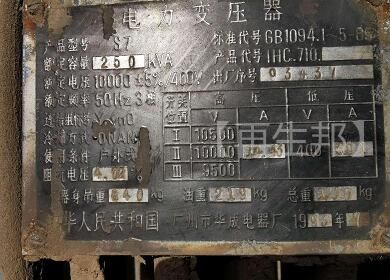 电力变压器
产品型号 S7 标准代号 GB1094.1-5-85
额定容量 250 KVA 产品代号 1HC.710.
额定电压 10000±5% 400V 出厂序号 93431
额定频率 50Hz 3相 开关 高压 低压
Yyn0 V A V A
冷却方式 ONAN I 10500
使用条件 户外式 II 10000 400
阻抗电压 4. III 9500
器身吊重 640 kg 油重 kg 总重 kg
华人民共和国 广州市华成电器厂 199
【再生邦】